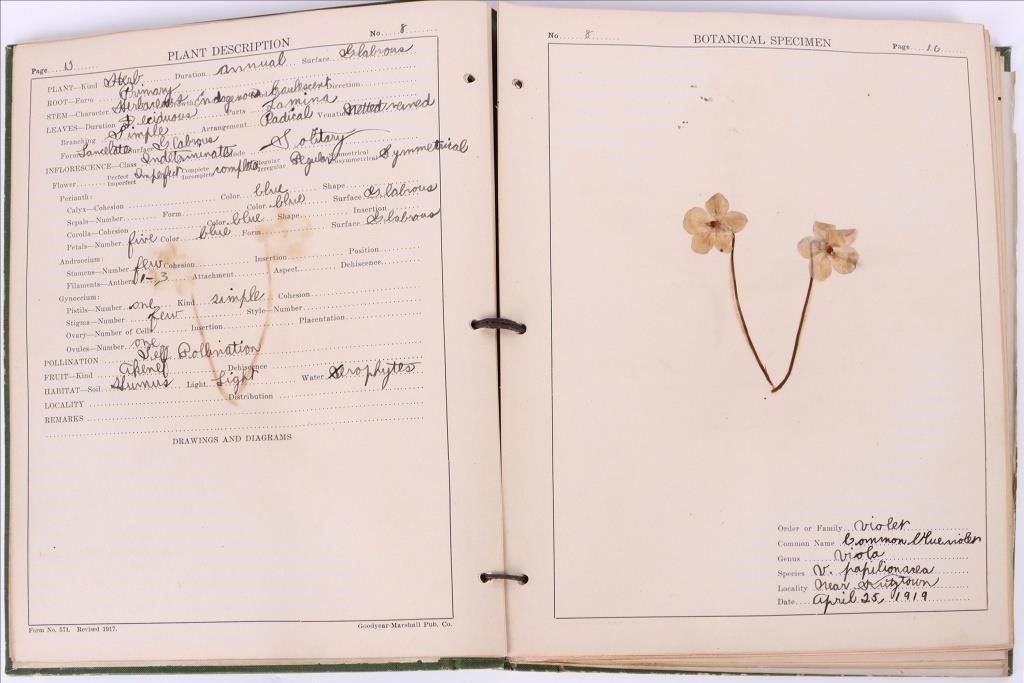 No. 8
PLANT DESCRIPTION
Page
PLANT—Kind Herb Duration annual Surface Glabrous
ROOT—Form Primary
STEM—Character Herbaceous Growth Endogenous Caulescent Direction
LEAVES—Duration Deciduous Parts Lamina
Branching Simple Arrangement Radical Venation Netted veined
Form Lancelate Surface Glabrous
INFLORESCENCE—Class Indeterminate Mode Solitary
Flower Perfect Imperfect Imperfect Complete Incomplete complete Regular Irregular Regular Symmetrical Unsymmetrical Symmetrical
Perianth:
Calyx—Cohesion Color blue Shape
Sepals—Number Form Color blue Surface Glabrous
Corolla—Cohesion Color blue Shape Insertion
Petals—Number five Color blue Form Surface Glabrous
Androecium:
Stamens—Number few Cohesion Insertion Position
Filaments—Anthers 1-3 Attachment Aspect Dehiscence
Gynoecium:
Pistils—Number one Kind simple Cohesion
Stigma—Number few Style—Number
Ovary—Number of Cells Insertion Placentation
Ovules—Number one
POLLINATION Self Pollination
FRUIT—Kind Akenes Dehiscence
HABITAT—Soil Humus Light Light Water Xerophytes
LOCALITY Distribution
REMARKS
DRAWINGS AND DIAGRAMS
Form No. 571. Revised 1917.
Goodyear-Marshall Pub. Co.
No. 8
BOTANICAL SPECIMEN
Page 16
Order or Family Violet
Common Name Common blue violet
Genus Viola
Species V. papilionacea
Locality Near Kutztown
Date April 25, 1919